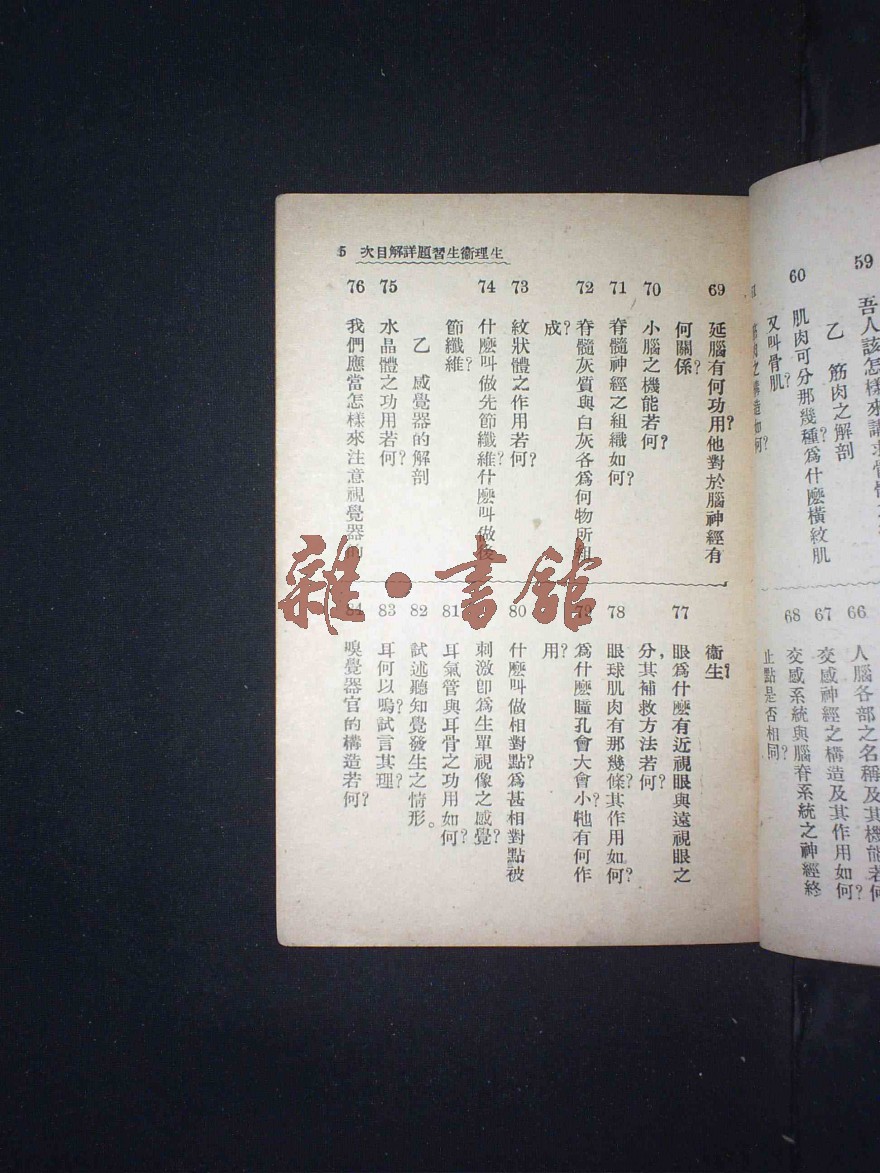 生理衞生習題詳解目次 5
59 吾人該怎樣來講求
乙 筋肉之解剖
60 肌肉可分那幾種?爲什麽橫紋肌
又叫骨肌?
筋肉之構造如何?
66 人腦各部之名稱及其機能若何
67 交感神經之構造及其作用如何?
68 交感系統與腦脊系統之神經終
止點是否相同?
69 延腦有何功用?他對於腦神經有
何關係?
70 小腦之機能若何?
71 脊髓神經之組織如何?
72 脊髓灰質與白灰各爲何物所組
成?
73 紋狀體之作用若何?
74 什麽叫做先節纖維?什麽叫做後
節纖維?
乙 感覺器的解剖
75 水晶體之功用若何?
76 我們應當怎樣來注意視覺器的
衞生?
77 眼爲什麽有近視眼與遠視眼之
分,其補救方法若何?
78 眼球肌肉有那幾條?其作用如何?
79 爲什麽瞳孔會大會小?牠有何作
用?
80 什麽叫做相對點?爲甚相對點被
刺激卽爲生單視像之感覺?
81 耳氣管與耳骨之功用如何?
82 試述聽知覺發生之情形。
83 耳何以鳴?試言其理?
84 嗅覺器官的構造若何?
雜·書館